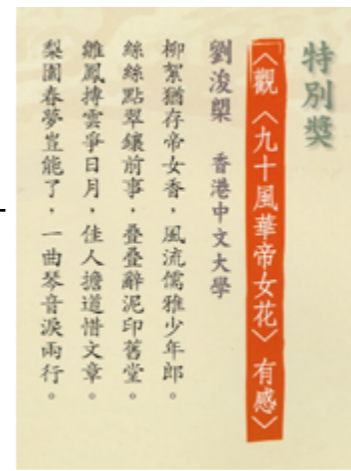 特別獎
〈觀〈九十風華帝女花〉有感〉
劉浚槊 香港中文大學
柳絮猶存帝女香，風流儒雅少年郎。
絲絲點翠鑲前事，疊疊辭泥印舊堂。
雛鳳搏雲爭日月，佳人擔道惜文章。
梨園春夢豈能了，一曲琴音淚兩行。